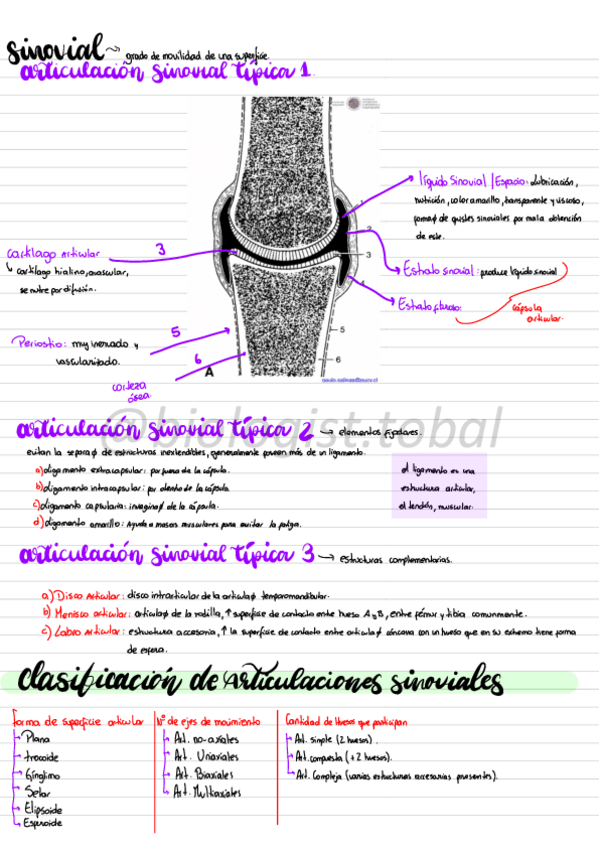 sinovial → grado de movilidad de una superficie.
articulación sinovial típica 1.
1
líquido Sinovial | Espacio: lubricación,
nutrición, color amarillo, transparente y viscoso,
formaø de quistes sinoviales por mala obtención
de este.
2
3
Cartílago Articular
3
cartílago hialino, avascular,
se nutre por difusión.
Estrato sinovial: produce líquido sinovial
4
Estrato fibroso:
cápsula
articular.
5
Periostio: muy inervado y
vascularizado.
5
6
6
A
corteza
ósea
@biologist.tobal
articulación sinovial típica 2 → elementos fijadores.
evitan la separaø de estructuras inextendibles, generalmente poseen más de un ligamento.
a) ligamento extracapsular: por fuera de la cápsula.
b) ligamento intracapsular: por dentro de la cápsula
c) ligamento capsular: invaginaø de la cápsula.
d) ligamento amarillo: Ayuda a masas musculares para evitar la fatiga.
el ligamento es una
estructura articular,
el tendón, muscular.
articulación sinovial típica 3 → estructuras complementarias.
a) Disco Articular: disco intrarticular de la articulaø temporomandibular.
b) Menisco articular: articulaø de la rodilla, ↑ superficie de contacto entre hueso A y B, entre fémur y tibia comunmente.
c) Labro Articular: estructura accesoria, ↑ la superficie de contacto entre articulaø cóncava con un hueso que en su extremo tiene forma
de esfera.
Clasificación de Articulaciones sinoviales
Forma de superficie articular
N° de ejes de movimiento
Cantidad de Huesos que participan
Plana
Art. no-axiales
Art. simple (2 huesos).
trocoide
Art. Uniaxiales
Art. compuesta (+2 huesos).
Gínglimo
Art. Biaxiales
Art. Compleja (varias estructuras accesorias presentes).
Selar
Art. Multiaxiales
Elipsoide
Esferoide